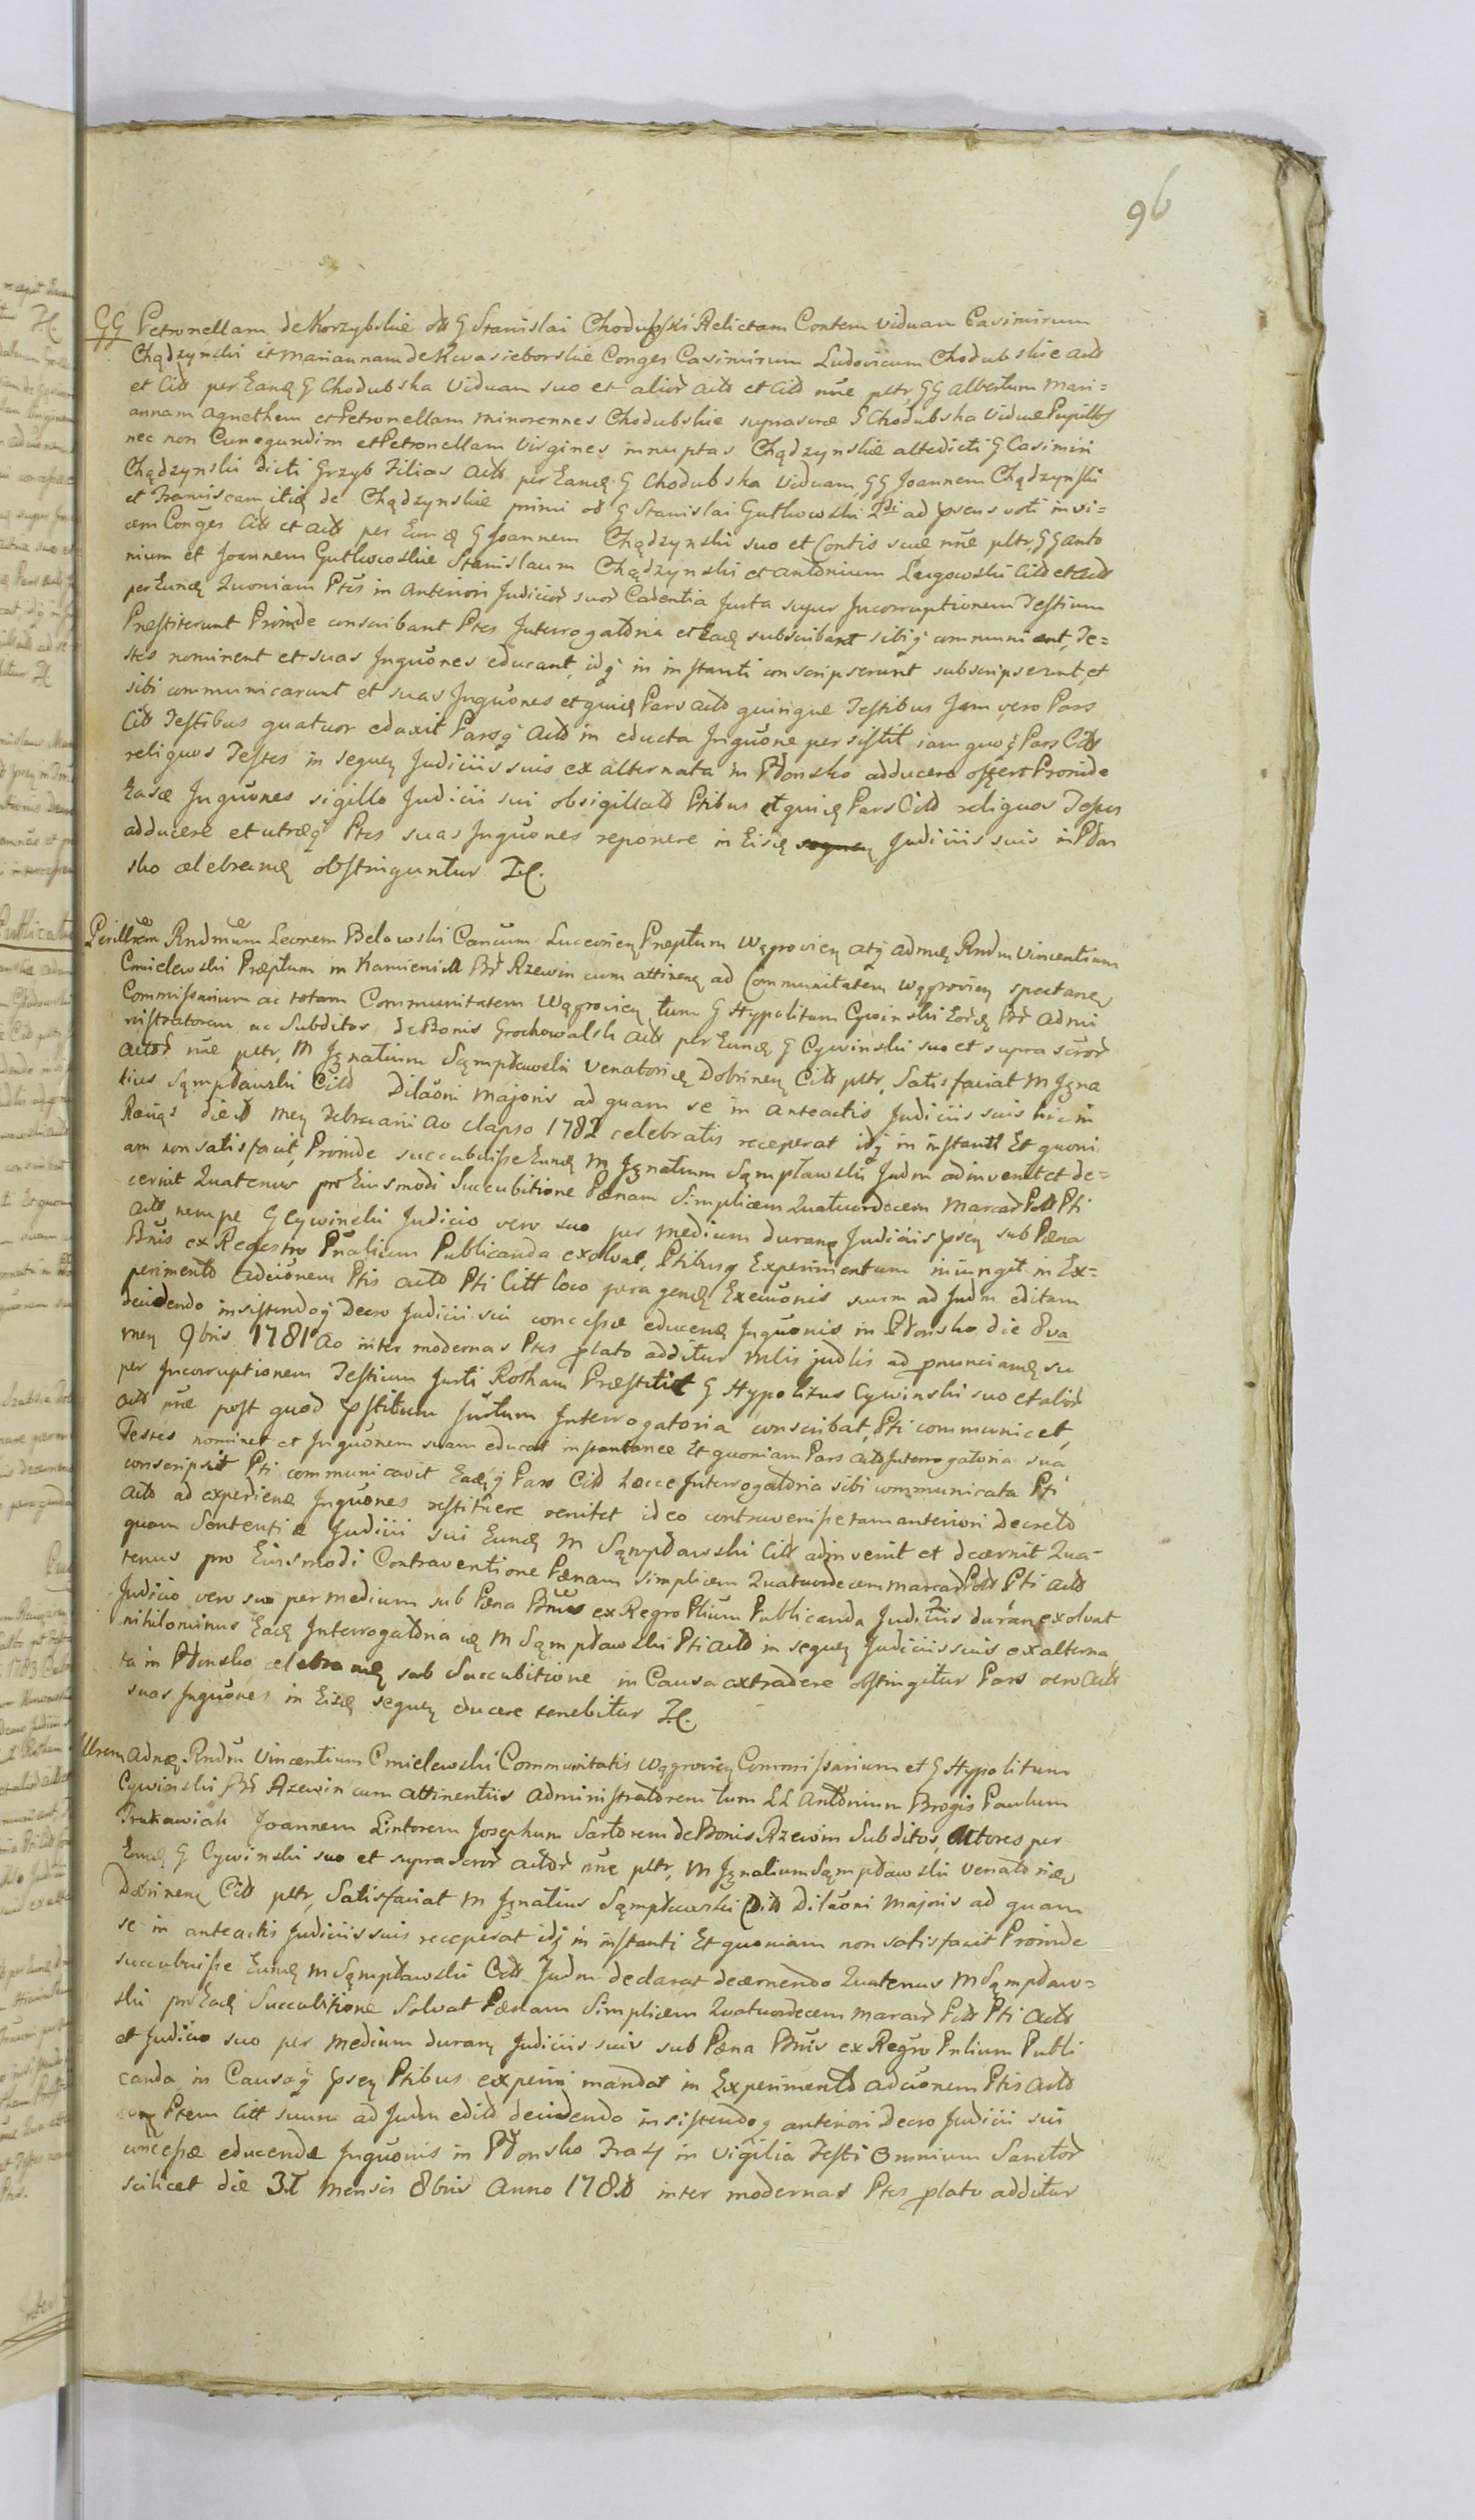 96
GG Petronellam de Korzybskie olt G Stanislai Chodubski Relictam Contem Viduam Casimirum
Chądzynski et Mariannam de Kwasieborskie Conges Casimirum Ludovicum Chodubskie acto
et Citt per Eandę G Chodubska Viduam suo et alior acto et Citt nne pltr, GG Albertum Mari=
annam Agnethem et Petronellam minorennes Chodubskie suprascrae G Chodubska Viduae Pupillos
nec non Cunegundim et Petronellam Virgines innuptas Chądzynskie altedicti G Casimiri
Chądzynski dicti Grzyb Filias acto per Eandę G Chodubska Viduam, GG Joannem Chądzynski
et Franciscam itidę de Chądzynskie primi olt G Stanislai Gutkowski 2di ad psens voti invi=
cem Conges Citt et acto per Eundę G Joannem Chądzynski suo et Contis suae nne pltr, GG Anto
nium et Joannem Gutkowskie Stanislaum Chądzynski et Antonium Lęgowski Citt et acto
per Eundę Quoniam Ptes in anteriori Judicior suor Cadentia Jurta super Incorruptionem Testium
Prestiterunt Proinde conscribant Ptes Interrogatoria et Eadę subscribant sibiq communicent, Te=
stes nominent et suas Inquones educant, idq in instanti conscripserunt subscripserunt, et
sibi communicarunt et suas Inquones et quidę Pars acto quinque Testibus Jam vero Pars
Citt Testibus quatuor eduxit Parsq acto in educta Inquone persistit iam quoq Pars Citt
reliquos Testes in sequen Judiciis suis ex alternata in Płonsko adducere offert Proinde
Easdę Inquones sigillo Judicii sui obsigillatt Ptibus et quidę Pars Citt reliquos Testes
adducere et utraeq Ptes suas Inquones reponere in Eisdę Judiciis suis in Płon
sko celebrandę obstringuntur H.
Perillrem Rndmum Leonem Belowski Cancum Luceorien Preptum Wągrovien atq admdę Rndm Vincentium
Cmielewski Preptum in Kamienica Br Rzewin cum attinen ad Communitatem Wągrovien spectanen
Commissarium ac totam Communitatem Wągrovien tum G Hypolitum Cywinski Eordę Br Admi
nistratorem ac Subditos de Bonis Grochowalsk acto per Eundę G Cywinski suo et suprascror
actor nne pltr, M Ignatium Sąmpławski Venatoridę Dobrinen Citt pltr, Satisfaciat M Igna
tius Sąmpławski Citt Dilaoni majoris ad quam se in anteactis Judiciis suis hic in
Raciąż die mey Februarii ao elapso 1782 celebratis receperat idq in instanti Et quoni
am non satisfacit, Proinde succubuisse Eundę M Ignatium Sąmpławski Judm adinvenit et de=
cernit Quatenus pro Eiusmodi Succubitione Paenam Simplicem Quatuordecem Marcar Pol Pti
acto nempe G Cywinski Judicio vero suo per medium duran Judiciis psen sub Paena
Bnis ex Regestro Pnalium Publicanda exolvat, Ptibusq Experimentum iniungit in Ex=
perimento adcionem Ptis acto Pti Citt loco peragendę Execuonis suum ad Judm editam
decidendo insistendoq Decro Judicii sui concessae educendę Inquonis in Płonsko die 8va
mey 9bris 1781 ao inter modernas Ptes plato additur Mlis judlis ad pnunciandę su
per Incorruptionem Testium Jurti Rotham Praestitit G Hypolitus Cywinski suo et alior
acto nne post quod pstitum Jurtum Interrogatoria conscribat, Pti communicet,
Testes nominet et Inquonem suam educat instantanee Et quoniam Pars acto Interrogatoria sua
conscripsit Pti communicavit Eadęq Pars Citt haecce Interrogatoria sibi communicata Pti
acto ad expedien Inquones restituere renitet ideo contravenisse tam anteriori Decreto
quam Sententiae Judicii sui Eundę M Sąmpławski Citt adinvenit et decernit Qua-
tenus pro Eiusmodi Contraventione Paenam simplicem Quatuordecem marcar Pol Pti acto
Judicio vero suo per medium sub Paena Bnis ex Regro Plium Publicanda Judiciis duran exolvat
nihilominus Eadę Interrogatoria idę M Sąmpławski Pti acto in sequen Judiciis suis ex alterna
ta in Płonsko celebrandę sub Succubitione in Causa extradere obstringitur Pars vero acto
suas Inquones in Eisdę sequen educere tenebitur H.
Ilrem Admdę Rndm Vincentium Cmielewski Communitatis Wągrovien Commissarium et G Hypolitum
Cywinski Br Rzewin cum attinentiis Administratorem tum LL Antonium Brogis Paulum
Trukawiak Joannem Lintorem Josephum Sartorem de Bonis Rzewin Subditos, Actores per
Eundę G Cywinski suo et suprascror actor nne pltr, M Ignatium Sąmpławski Venatoridę
Dobrinen Citt pltr, Satisfaciat M Ignatius Sąmpławski Citt Dilaoni Majoris ad quam
se in anteactis Judiciis suis receperat idq in instanti Et quoniam non satisfacit Proinde
succubuisse Eundę M Sąmpławski Citt Judm declarat decernendo Quatenus M Sąmpław=
ski pro Eadę Succubitione Solvat Paenam Simplicem Quatuordecem Marcar Pol Pti acto
et Judicio suo per medium duran Judiciis suis sub Paena Bnis ex Regro Pnlium Publi
canda in Causaq psen Ptibus experiri mandat in Experimento adcionem Ptis acto
Ptem Citt suum ad Judm edito decidendo insistendoq anteriori Decro Judicii sui
concessae educendae Inquonis in Płonsko Fra 4 in Vigilia Festi Omnium Sanctor
scilicet die 31 Mensis 8bris Anno 178 inter modernas Ptes plato additur